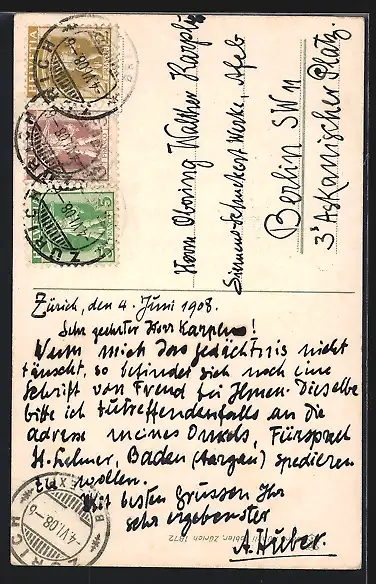 Herrn Obering Walther Karplus
Siemens-Schuckert Werke, Abtb
Berlin SW 11
3 Askanischer Platz.
Zürich, den 4. Juni 1908.
Sehr geehrter Herr Karplus!
Wenn mich das Gedächtnis nicht
täuscht, so befindet sich noch eine
Schrift von Freud bei Ihnen. Dieselbe
bitte ich zutreffendenfalls an die
Adresse meines Onkels, Fürsprech
H. Lehner, Baden (Aargau) spedieren
zu wollen.
Mit besten Grüssen Ihr
sehr ergebenster
A. Huber.
HELVETIA
HELVETIA
HELVETIA 5
ZÜRICH
4.VI.08
ZÜRICH
4.VI.08-6
Zürich 1972